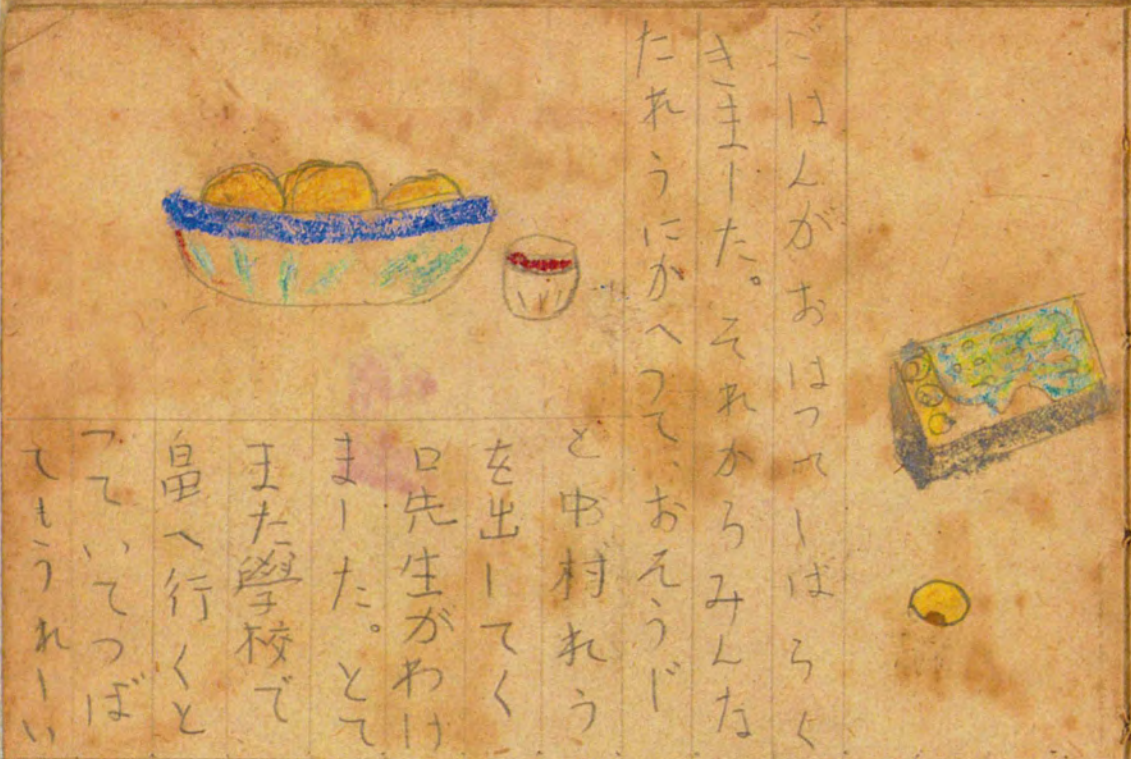 ごはんがおはつてしばらく
きました。それからみんな
たれうにかへつて、おえうじ
と中村れう
を出してく
口先生がわけ
ました。とて
また學校で
畠へ行くと
つていてつば
てもうれしい